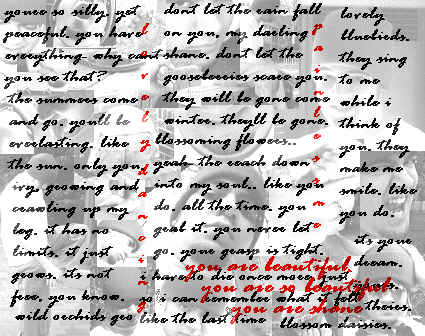 youre so silly. yet
peaceful. you have
everything- why cant
you see that?
the summers come
and go. you'll be
everlasting. like
the sun. only you,
ivy. growing and
crawling up my
leg. it has no
limits. it just
grows. its not
free, you know.
wild orchids gro
dont let the rain fall
on you, my darling
shane. dont let the
gooseberries scare you.
they will be gone come
winter. they'll be gone.
blossoming flowers..
yeah the reach down
into my soul.. like you
do. all the time. you
grab it. you never let
go. your grasp is tight.
i have to die once more just
so i can remember what it felt
like the last time
lovely
bluebirds.
they sing
to me
while i
think of
you. they
make me
smile. like
you do.
its your
dream.
theirs.
blossom daisies.
you are beautiful
you are so beautiful
you are shane